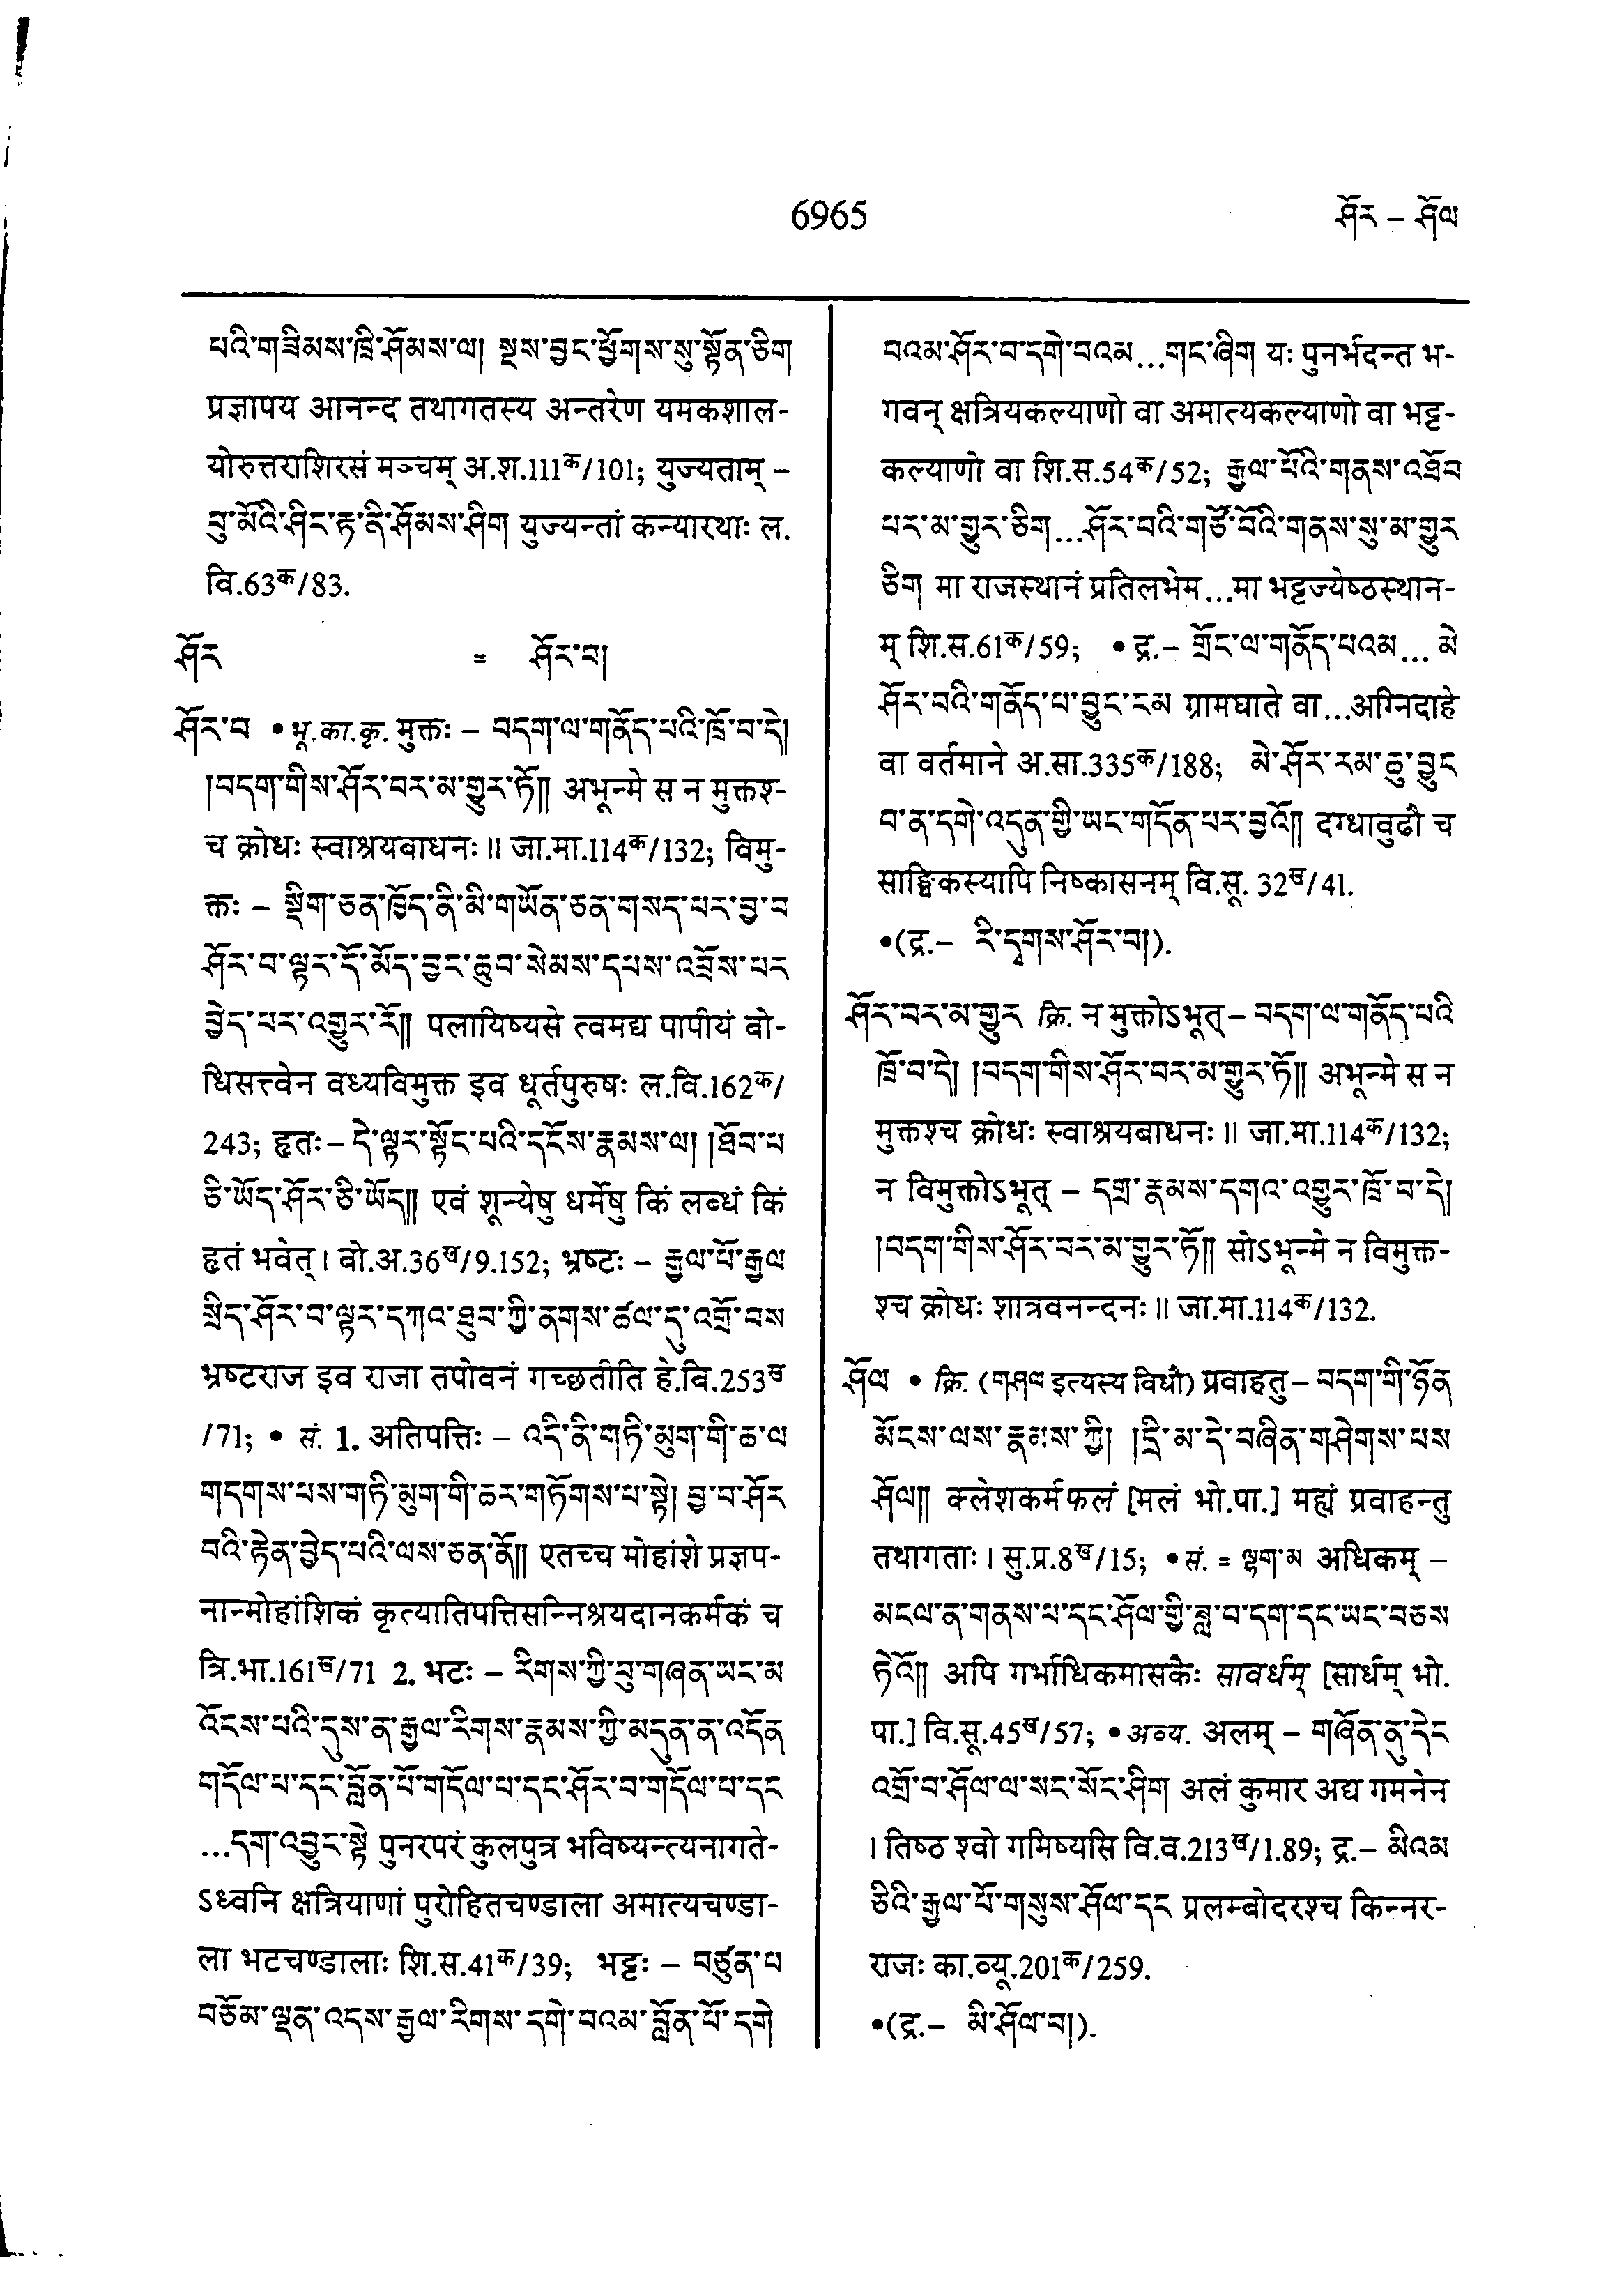 6965
ཤོར – ཤོལ
པའི་གཟིམས་ཁྲི་ཤོམས་ལ། སྔས་བྱང་ཕྱོགས་སུ་སྟོན་ཅིག
प्रज्ञापय आनन्द तथागतस्य अन्तरेण यमकशाल-
योरुत्तराशिरसं मञ्चम् अ.श.111क/101; युज्यताम् –
བུ་མོའི་ཤིང་རྟ་ནི་ཤོམས་ཤིག युज्यन्तां कन्यारथाः ल.
वि.63क/83.
ཤོར = ཤོར་བ།
ཤོར་བ • भू.का.कृ. मुक्तः – བདག་ལ་གནོད་པའི་ཁྲོ་བ་དེ།
།བདག་གིས་ཤོར་བར་མ་གྱུར་ཏོ༎ अभून्मे स न मुक्तश्-
च क्रोधः स्वाश्रयबाधनः॥ जा.मा.114क/132; विमु-
क्तः – སྡིག་ཅན་ཁྱོད་ནི་མི་གཡོན་ཅན་གསད་པར་བྱ་བ
ཤོར་བ་ལྟར་དོ་མོད་བྱང་ཆུབ་སེམས་དཔས་འབྲོས་པར
བྱེད་པར་འགྱུར་རོ༎ पलायिष्यसे त्वमद्य पापीयं बो-
धिसत्त्वेन वध्यविमुक्त इव धूर्तपुरुषः ल.वि.162क/
243; हृतः – དེ་ལྟར་སྟོང་པའི་དངོས་རྣམས་ལ། །ཐོབ་པ
ཅི་ཡོད་ཤོར་ཅི་ཡོད༎ एवं शून्येषु धर्मेषु किं लब्धं किं
हृतं भवेत्। बो.अ.36ख/9.152; भ्रष्टः – རྒྱལ་པོ་རྒྱལ
སྲིད་ཤོར་བ་ལྟར་དཀའ་ཐུབ་ཀྱི་ནགས་ཚལ་དུ་འགྲོ་བས
भ्रष्टराज इव राजा तपोवनं गच्छतीति हे.बि.253ख
/71; • सं. 1. अतिपत्तिः – འདི་ནི་གཏི་མུག་གི་ཆ་ལ
གདགས་པས་གཏི་མུག་གི་ཆར་གཏོགས་པ་སྟེ། བྱ་བ་ཤོར
བའི་རྟེན་བྱེད་པའི་ལས་ཅན་ནོ༎ एतच्च मोहांशे प्रज्ञप-
नान्मोहांशिकं कृत्यातिपत्तिसन्निश्रयदानकर्मकं च
त्रि.भा.161ख/71 2. भटः – རིགས་ཀྱི་བུ་གཞན་ཡང་མ
འོངས་པའི་དུས་ན་རྒྱལ་རིགས་རྣམས་ཀྱི་མདུན་ན་འདོན
གདོལ་པ་དང་བློན་པོ་གདོལ་པ་དང་ཤོར་བ་གདོལ་བ་དང
...དག་འབྱུང་སྟེ पुनरपरं कुलपुत्र भविष्यन्त्यनागते-
ऽध्वनि क्षत्रियाणां पुरोहितचण्डाला अमात्यचण्डा-
ला भटचण्डालाः शि.स.41क/39; भट्टः – བཙུན་པ
བཅོམ་ལྡན་འདས་རྒྱལ་རིགས་དགེ་བའམ་བློན་པོ་དགེ
བའམ་ཤོར་བ་དགེ་བའམ...གང་ཞིག यः पुनर्भदन्त भ-
गवन् क्षत्रियकल्याणो वा अमात्यकल्याणो वा भट्ट-
कल्याणो वा शि.स.54क/52; རྒྱལ་པོའི་གནས་འཐོབ
པར་མ་གྱུར་ཅིག...ཤོར་བའི་གཙོ་བོའི་གནས་སུ་མ་གྱུར
ཅིག मा राजस्थानं प्रतिलभेम...मा भट्टज्येष्ठस्थान-
म् शि.स.61क/59; • द्र.– གྲོང་ལ་གནོད་པའམ... མེ
ཤོར་བའི་གནོད་པ་བྱུང་ངམ ग्रामघाते वा...अग्निदाहे
वा वर्तमाने अ.सा.335क/188; མེ་ཤོར་རམ་ཆུ་བྱུང
བ་ན་དགེ་འདུན་གྱི་ཡང་གདོན་པར་བྱའོ༎ दग्धावुढौ च
साङ्घिकस्यापि निष्कासनम् वि.सू. 32ख/41.
•(द्र.– རི་དྭགས་ཤོར་བ།).
ཤོར་བར་མ་གྱུར क्रि. न मुक्तोऽभूत् – བདག་ལ་གནོད་པའི
ཁྲོ་བ་དེ། །བདག་གིས་ཤོར་བར་མ་གྱུར་ཏོ༎ अभून्मे स न
मुक्तश्च क्रोधः स्वाश्रयबाधनः॥ जा.मा.114क/132;
न विमुक्तोऽभूत् – དགྲ་རྣམས་དགའ་འགྱུར་ཁྲོ་བ་དེ།
།བདག་གིས་ཤོར་བར་མ་གྱུར་ཏོ༎ सोऽभून्मे न विमुक्त-
श्च क्रोधः शात्रवनन्दनः॥ जा.मा.114क/132.
ཤོལ • क्रि. (གཤལ इत्यस्य विधौ) प्रवाहतु – བདག་གི་ཉོན
མོངས་ལས་རྣམས་ཀྱི། །དྲི་མ་དེ་བཞིན་གཤེགས་པས
ཤོལ༎ क्लेशकर्मफलं [मलं भो.पा.] मह्यं प्रवाहन्तु
तथागताः। सु.प्र.8ख/15; • सं. = ལྷག་མ अधिकम् –
མངལ་ན་གནས་པ་དང་ཤོལ་གྱི་ཟླ་བ་དག་དང་ཡང་བཅས
ཏེའོ༎ अपि गर्भाधिकमासकैः सावर्धम् [सार्धम् भो.
पा.] वि.सू.45ख/57; • अव्य. अलम् – གཞོན་ནུ་དེང
འགྲོ་བ་ཤོལ་ལ་སང་སོང་ཤིག अलं कुमार अद्य गमनेन
। तिष्ठ श्वो गमिष्यसि वि.व.213ख/1.89; द्र.– མིའམ
ཅིའི་རྒྱལ་པོ་གསུས་ཤོལ་དང प्रलम्बोदरश्च किन्नर-
राजः का.व्यू.201क/259.
•(द्र.– མི་ཤོལ་བ།).